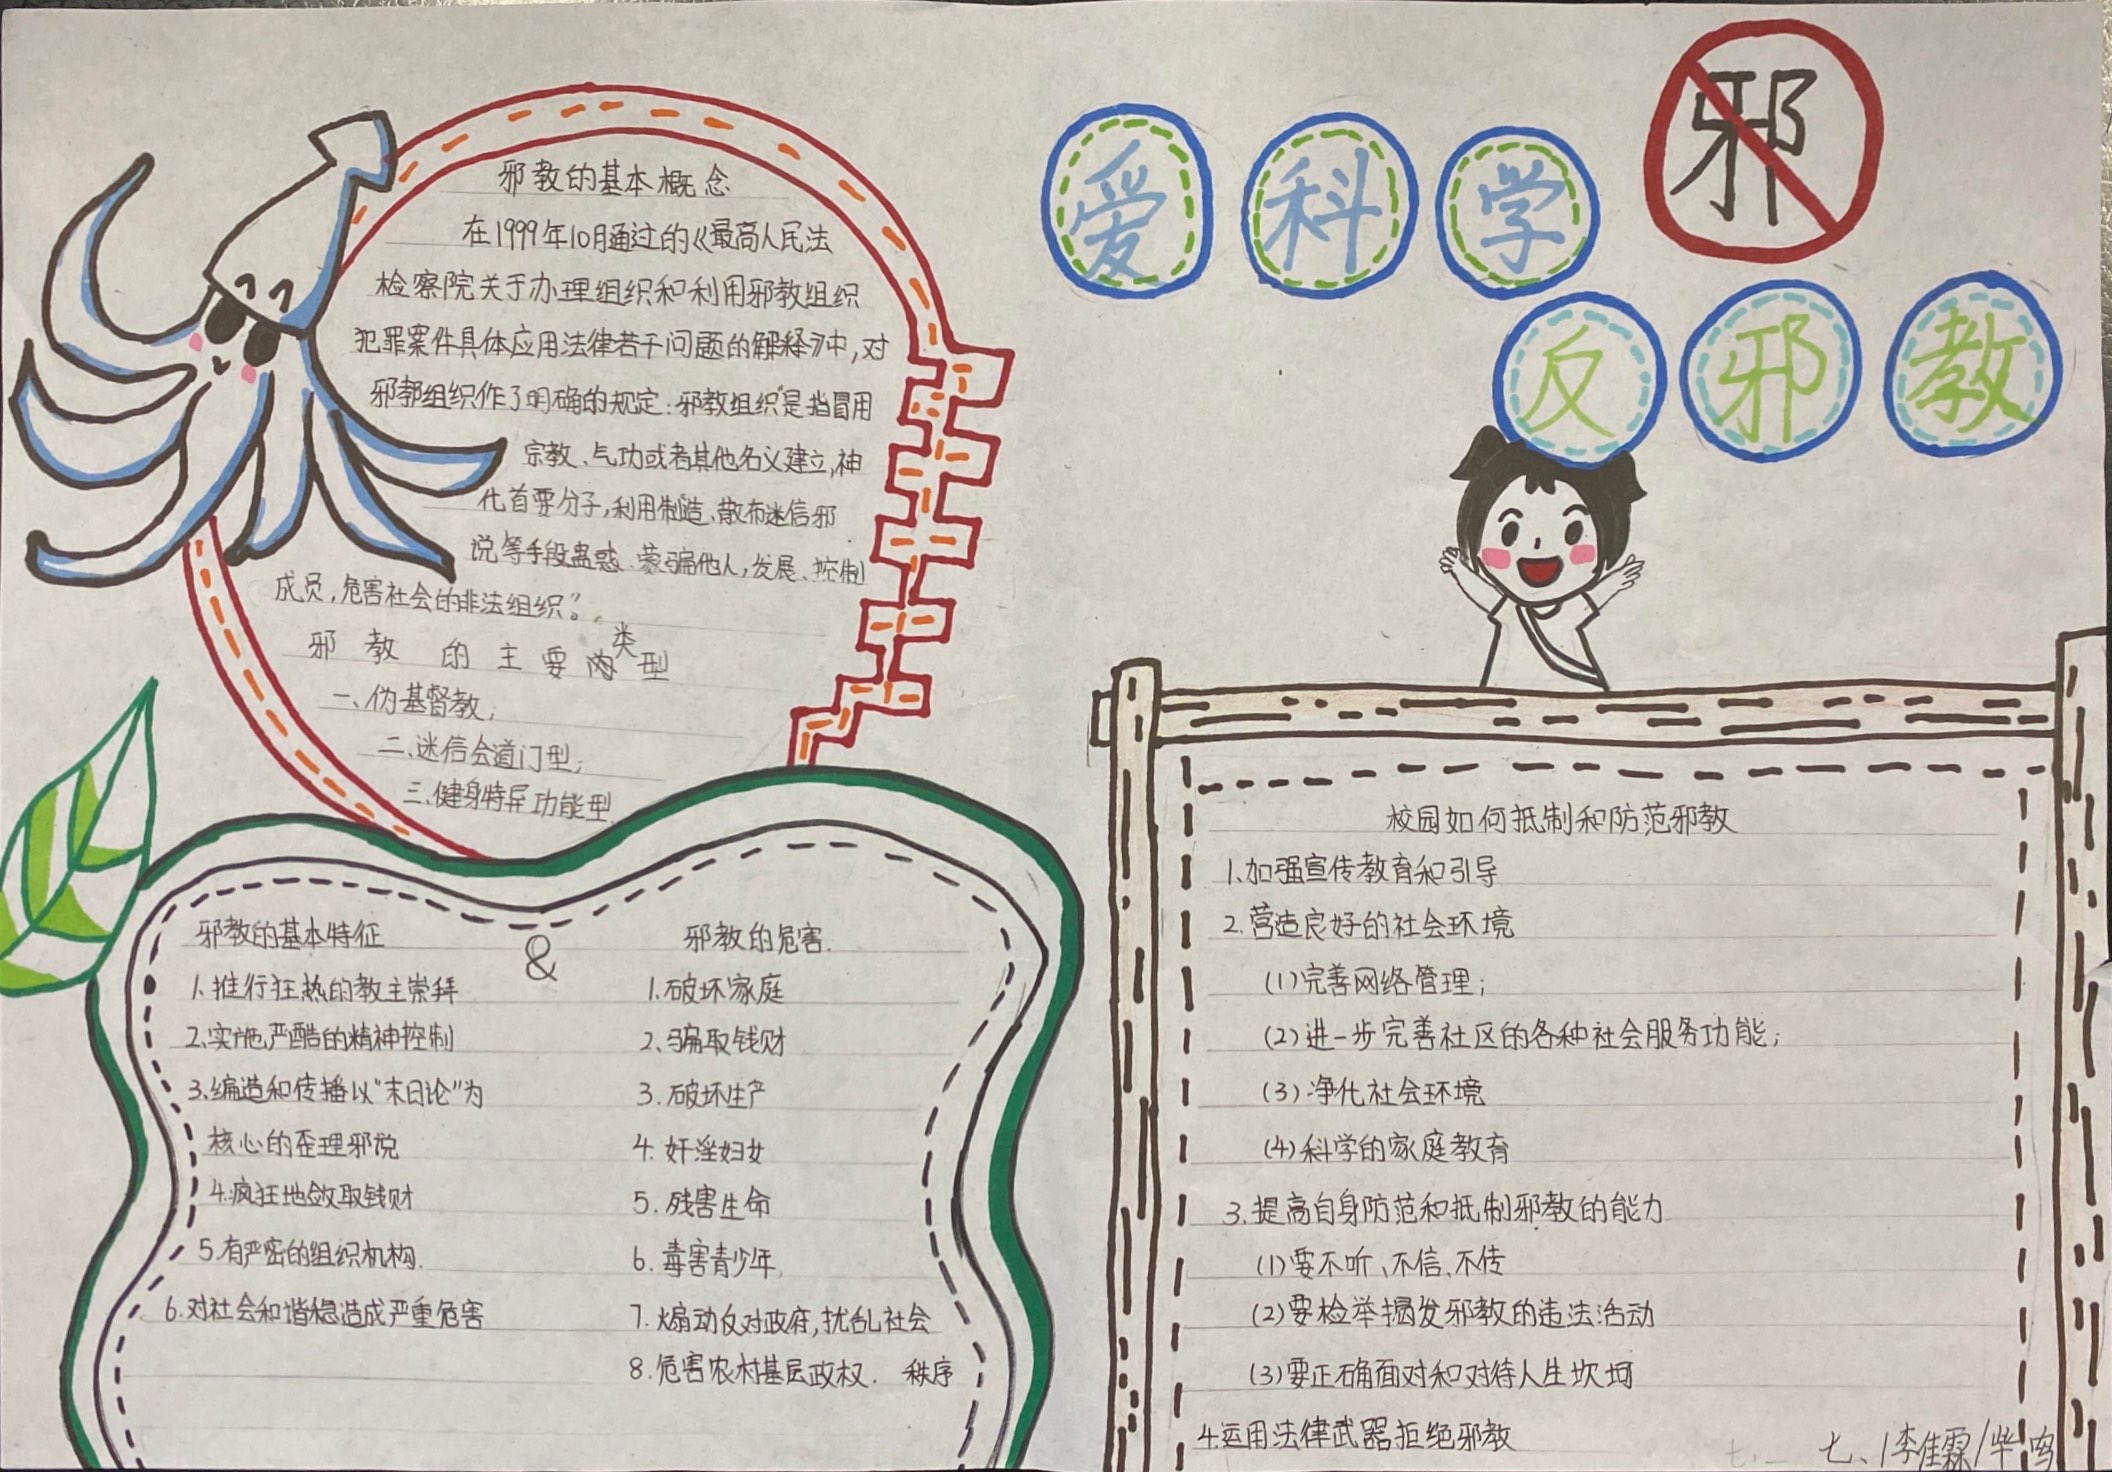 爱科学
邪
反邪教
邪教的基本概念
在1999年10月通过的《最高人民法
检察院关于办理组织和利用邪教组织
犯罪案件具体应用法律若干问题的解释》中,对
邪教组织作了明确的规定:邪教组织"是指冒用
宗教、气功或者其他名义建立,神
化首要分子,利用制造、散布迷信邪
说等手段蛊惑、蒙骗他人,发展、控制
成员,危害社会的非法组织"。
邪教的主要类型
一、伪基督教;
二、迷信会道门型;
三、健身特异功能型
邪教的基本特征
1.推行狂热的教主崇拜
2.实施严酷的精神控制
3.编造和传播以"末日论"为
核心的歪理邪说
4.疯狂地敛取钱财
5.有严密的组织机构.
6.对社会和谐稳造成严重危害
&
邪教的危害.
1.破坏家庭
2.骗取钱财
3.破坏生产
4.奸淫妇女
5.残害生命
6.毒害青少年,
7.煽动反对政府,扰乱社会
8.危害农村基层政权. 秩序
校园如何抵制和防范邪教
1.加强宣传教育和引导
2.营造良好的社会环境
(1)完善网络管理;
(2)进一步完善社区的各种社会服务功能;
(3)净化社会环境
(4)科学的家庭教育
3.提高自身防范和抵制邪教的能力
(1)要不听、不信、不传
(2)要检举揭发邪教的违法活动
(3)要正确面对和对待人生坎坷
4.运用法律武器拒绝邪教
七、1李佳霖/柴鸣